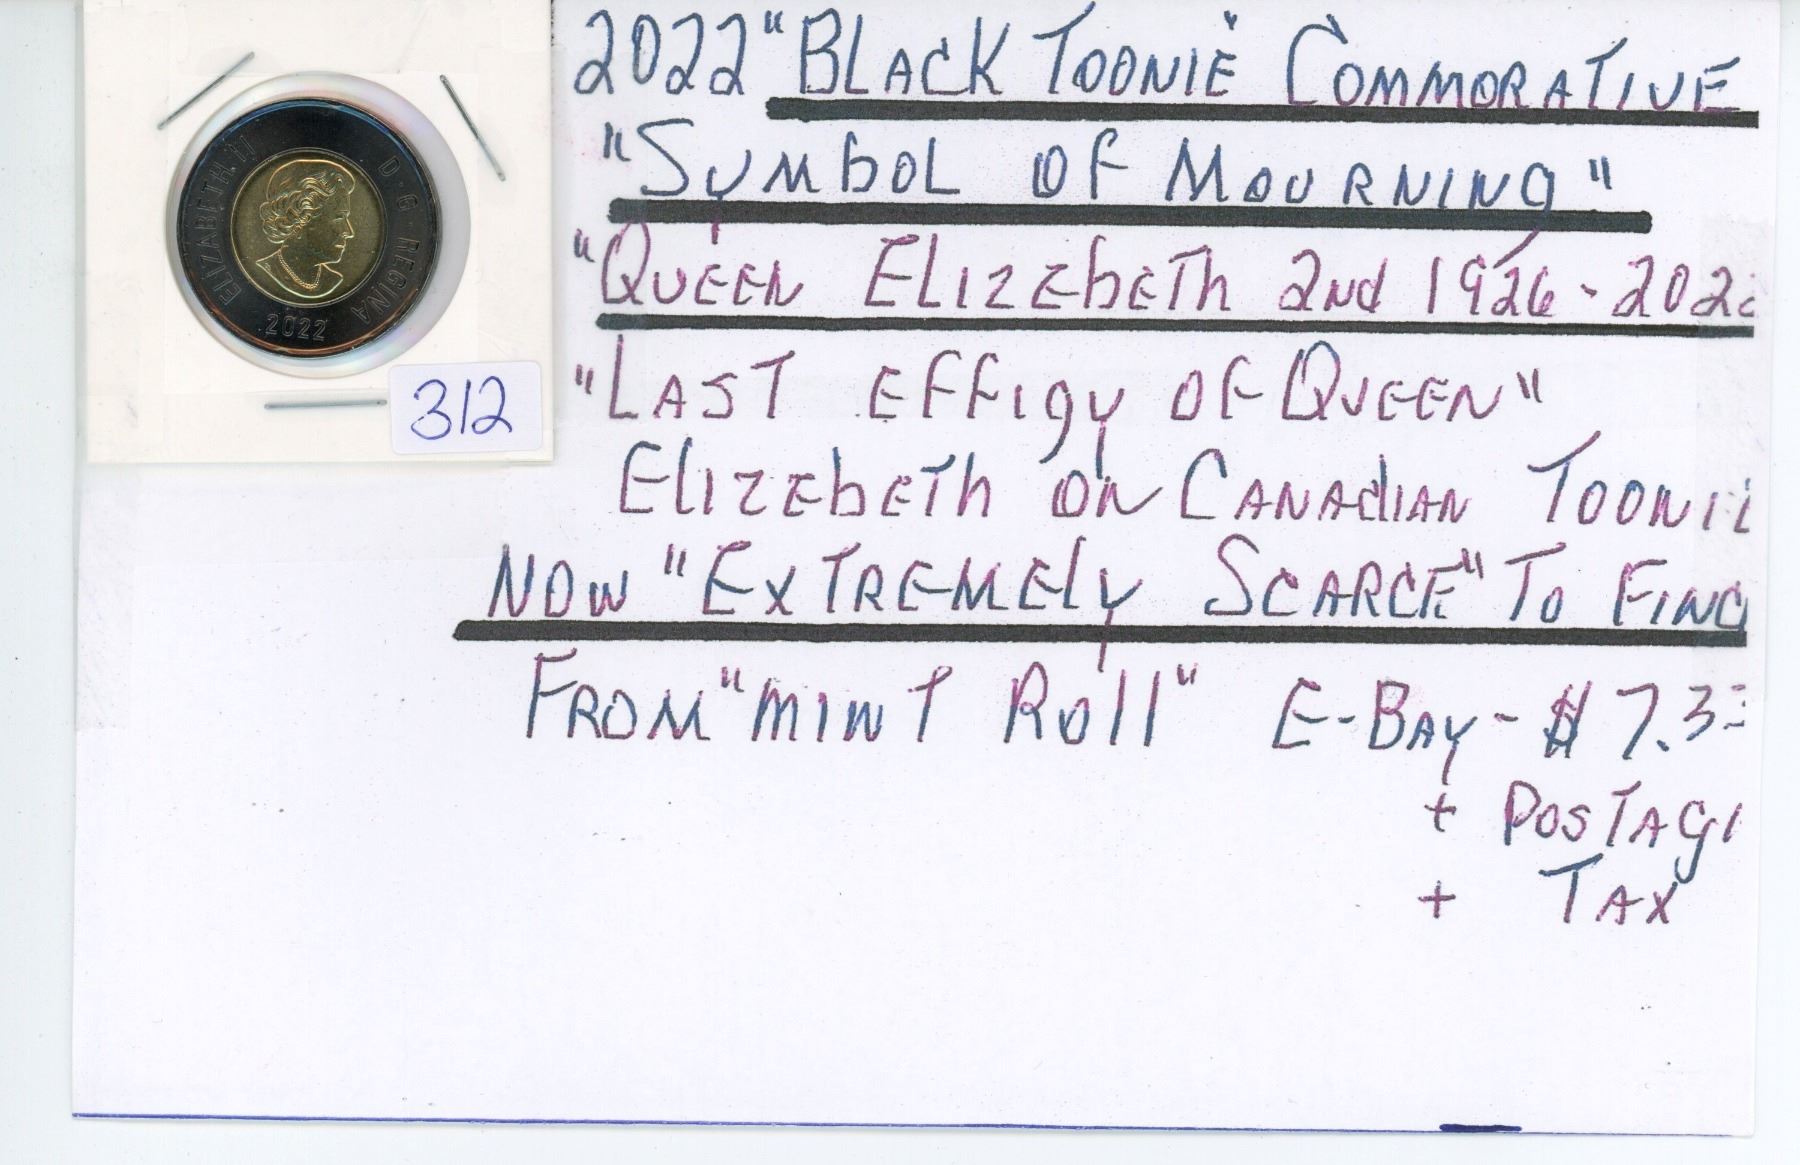 2022 "BLACK TOONIE" COMMORATIVE
"SYMBOL OF MOURNING"
"QUEEN ELIZEBETH 2ND 1926-202
"LAST EFFIGY OF QUEEN"
ELIZEBETH ON CANADIAN TOONI
NOW "EXTREMELY SCARCE" TO FIND
FROM "MINT ROLL" E-BAY - $7.3
+ POSTAG
+ TAX
ELIZABETH II D·G·REGINA
2022
312